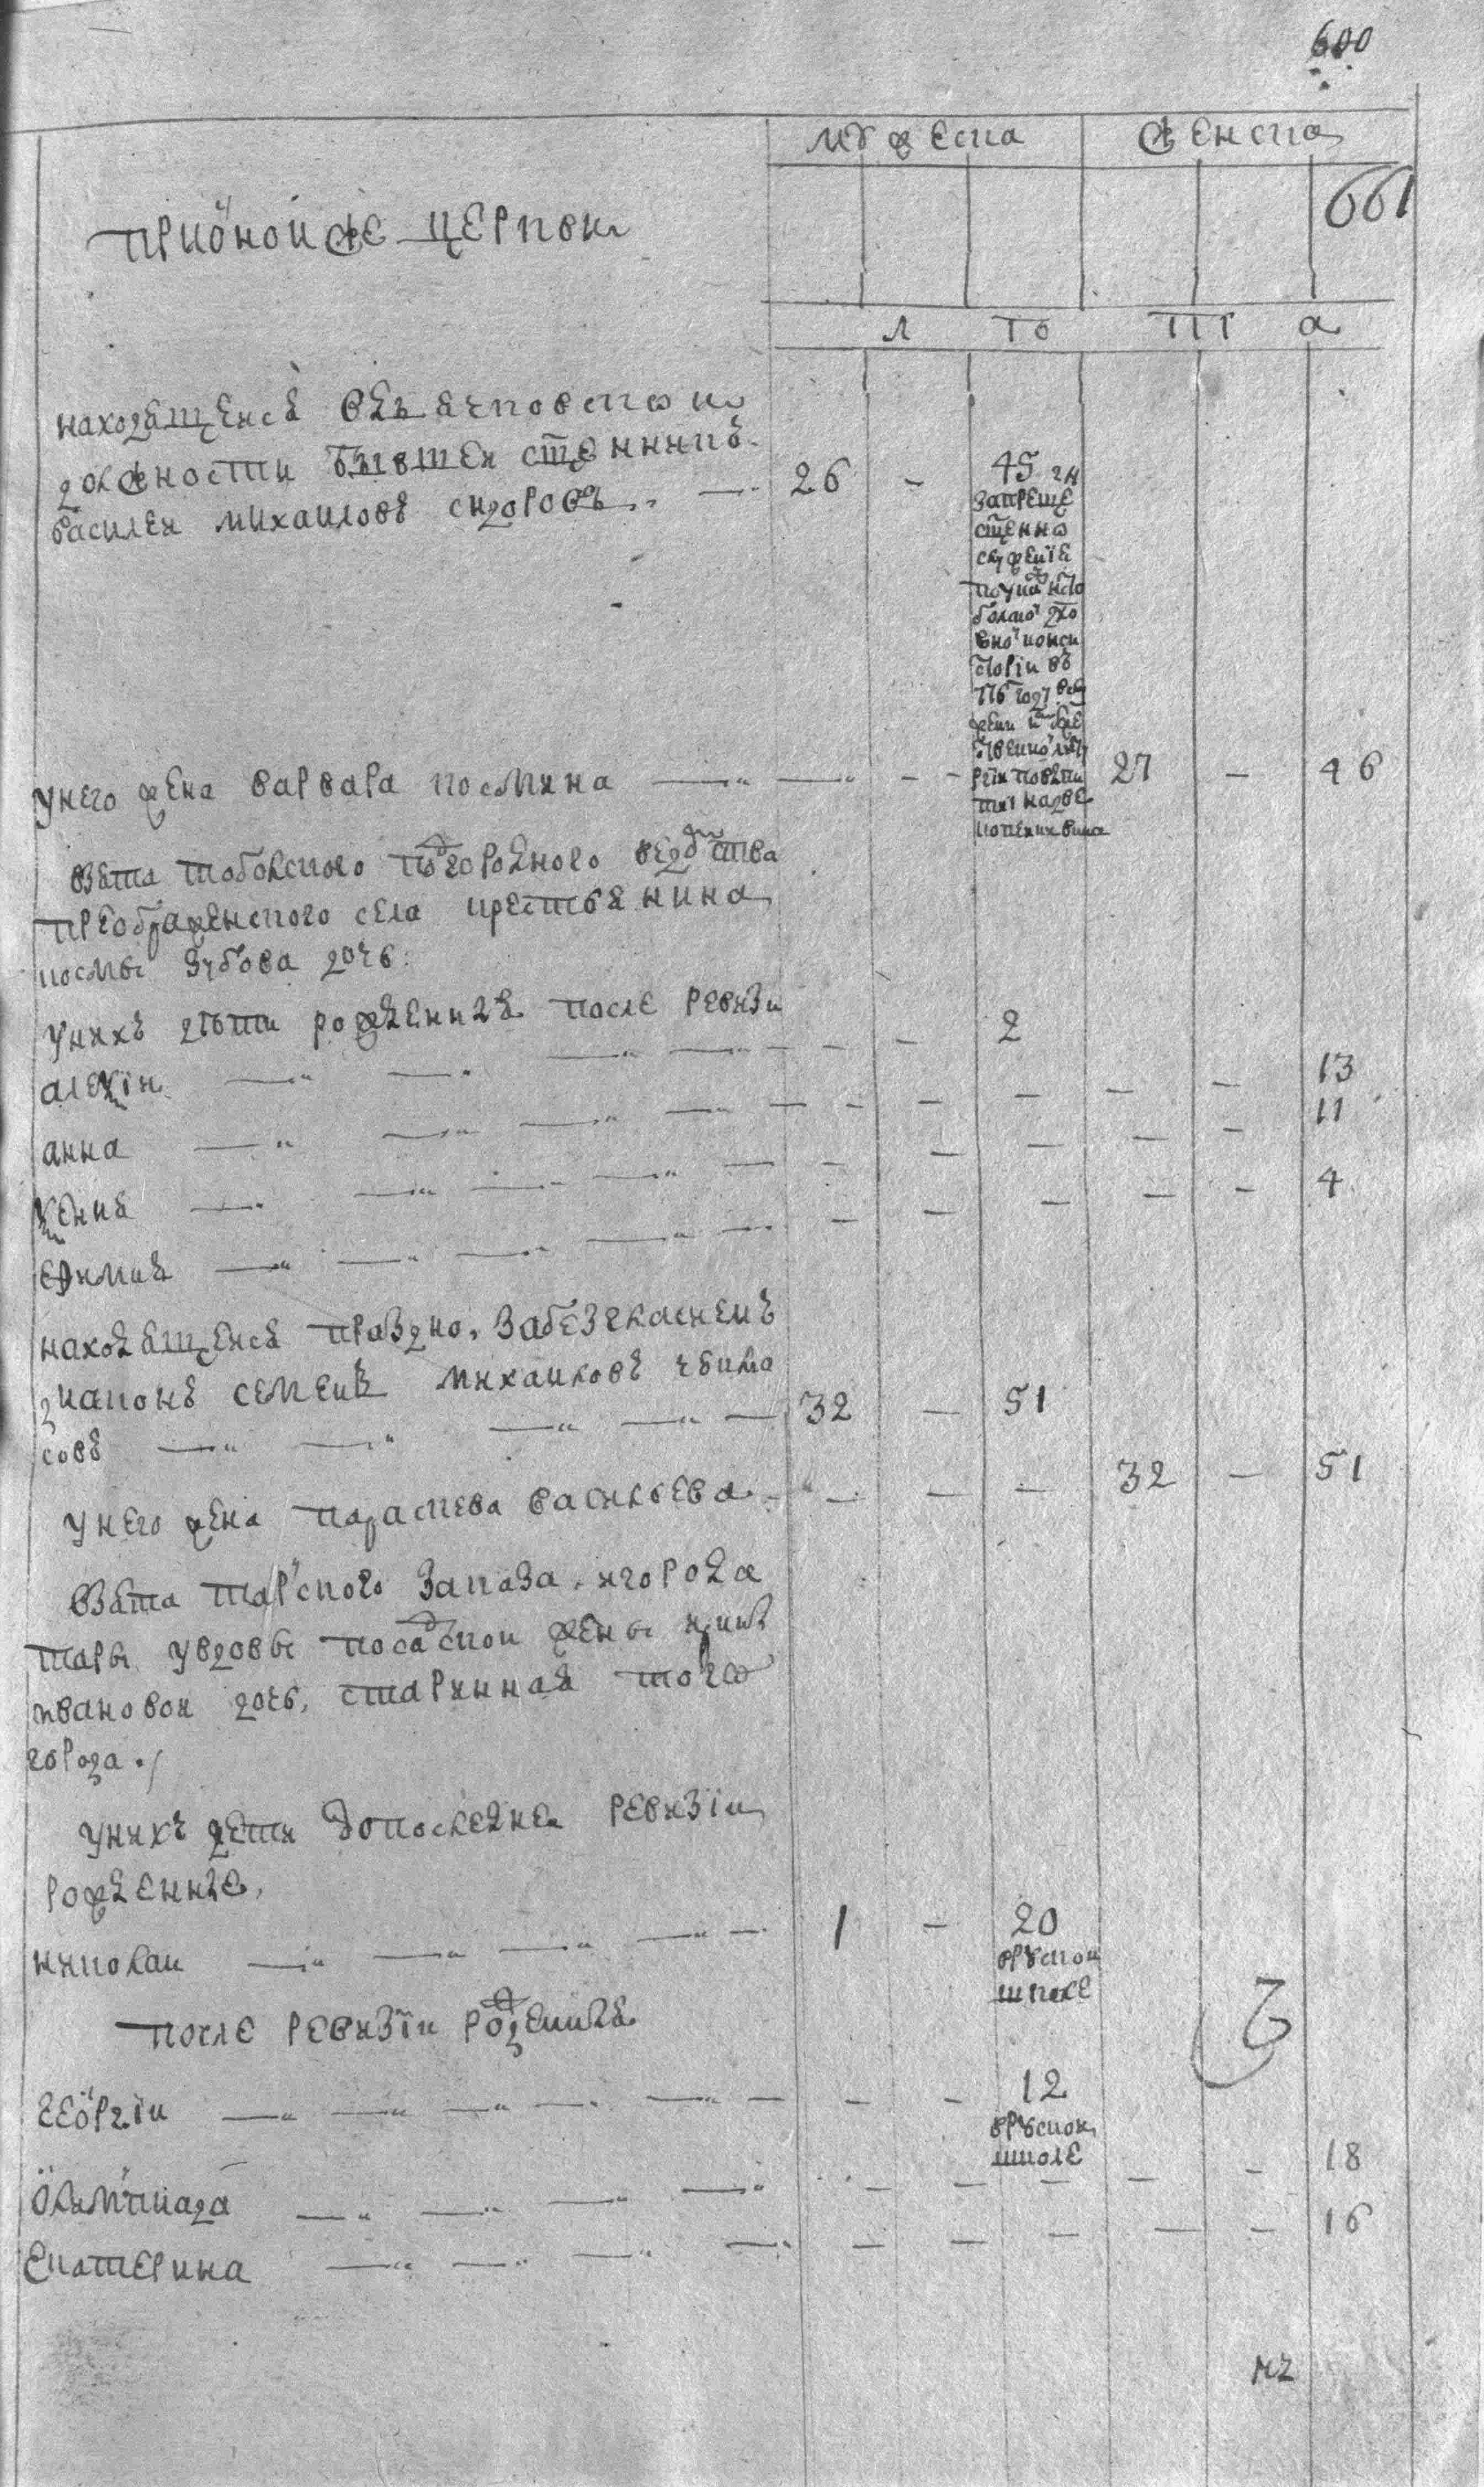 600
мужеска женска
661
При оной же церкви
л то пр а
находящейся въ дьячковской
должности бывшей священникъ
василей михаиловъ сидоровъ 26 - 45
запреще
священно
служенiе
по указу изъ то
болской духо
вной конси
сторiи въ
году
у него жена варвара космина 27 - 46
взята тоболского подгородного ведомства
преображенского села крестьянина
космы зубова дочь
у нихъ дѣти рожденныя после ревизи
алеѯiй 2
анна 13
ѯения 11
еѳимия 4
находящейся праздно за безгласиемъ
диаконъ семенъ михаиловъ
совъ 32 - 51
у него жена параскева васильева 32 - 51
взята тарского заказа города
тары у вдовы посадской жены
ивановой дочь, старинная того
города
у нихъ дети до последней ревизiи
рожденные,
николай 1 - 20
в русской
школе
после ревизiи рожденныя
геѡргiй 12
в русской
школе
Ѡлимпиада 18
Екатерина 16